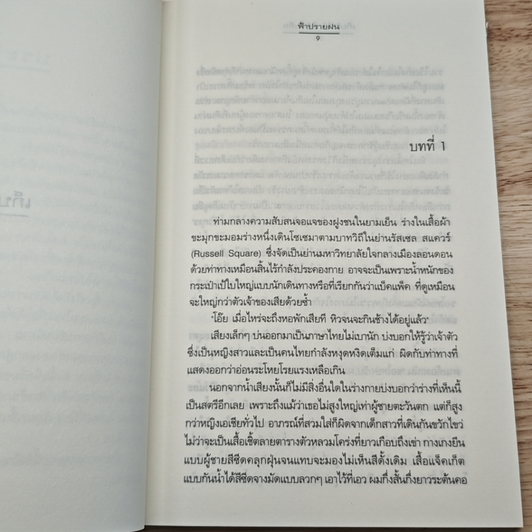 ฟ้าปรายฝน
9
บทที่ 1
ท่ามกลางความสับสนจอแจของฝูงชนในยามเย็น ร่างในเสื้อผ้า
ขะมุกขะมอมร่างหนึ่งเดินโซเซมาตามบาทวิถีในย่านรัสเซล สแควร์
(Russell Square) ซึ่งจัดเป็นย่านมหาวิทยาลัยใจกลางเมืองลอนดอน
ด้วยท่าทางเหมือนสิ้นไร้กำลังประคองกาย อาจจะเป็นเพราะน้ำหนักของ
กระเป๋าเป้ใบใหญ่แบบนักเดินทางหรือที่เรียกกันว่าแบ็คแพ็ค ที่ดูเหมือน
จะใหญ่กว่าตัวเจ้าของเสียด้วยซ้ำ
'โอ๊ย เมื่อไหร่จะถึงหอพักเสียที หิวจนจะกินช้างได้อยู่แล้ว'
เสียงเล็กๆ บ่นออกมาเป็นภาษาไทยไม่เบานัก บ่งบอกให้รู้ว่าเจ้าตัว
ซึ่งเป็นหญิงสาวและเป็นคนไทยกำลังหงุดหงิดเต็มแก่ ผิดกับท่าทางที่
แสดงออกว่าอ่อนระโหยโรยแรงเหลือเกิน
นอกจากน้ำเสียงนั้นก็ไม่มีสิ่งอื่นใดในร่างกายบ่งบอกว่าร่างที่เห็นนี้
เป็นสตรีอีกเลย เพราะถึงแม้ว่าเธอไม่สูงใหญ่เท่าผู้ชายตะวันตก แต่ก็สูง
กว่าหญิงเอเชียทั่วไป อาภรณ์ที่สวมใส่ก็ผิดจากเด็กสาวที่เดินขวักไขว่
ไม่ว่าจะเป็นเสื้อเชิ้ตลายตารางตัวหลวมโคร่งที่ยาวเกือบถึงเข่า กางเกงยีน
แบบผู้ชายสีซีดคลุกฝุ่นจนแทบจะมองไม่เห็นสีดั้งเดิม เสื้อแจ็คเก็ต
แบบกันน้ำได้สีซีดจางมัดแบบลวกๆ เอาไว้ที่เอว ผมกึ่งสั้นกึ่งยาวระต้นคอ